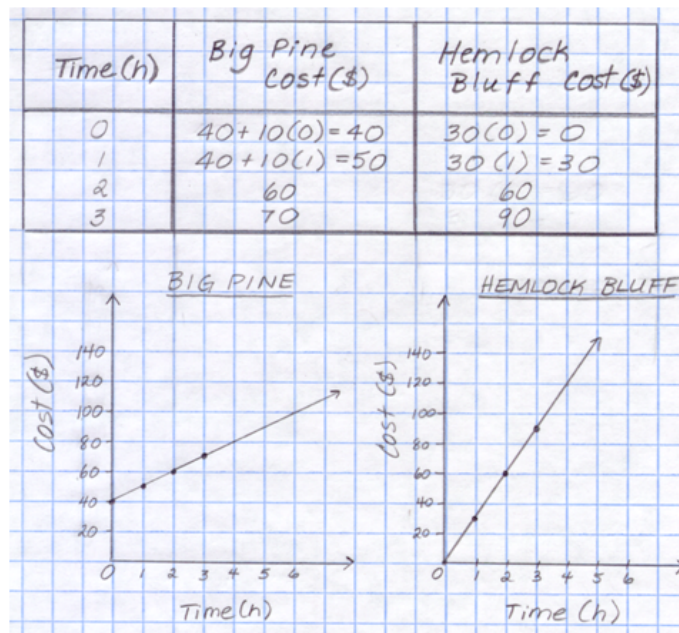 Time (h)
Big Pine
Cost ($)
Hemlock
Bluff Cost ($)
0 40+10(0)=40 30(0)=0
1 40+10(1)=50 30(1)=30
2 60 60
3 70 90
BIG PINE
Cost ($)
140
120
100
80
60
40
20
0 1 2 3 4 5 6
Time (h)
HEMLOCK BLUFF
Cost ($)
140
120
100
80
60
40
20
0 1 2 3 4 5 6
Time (h)